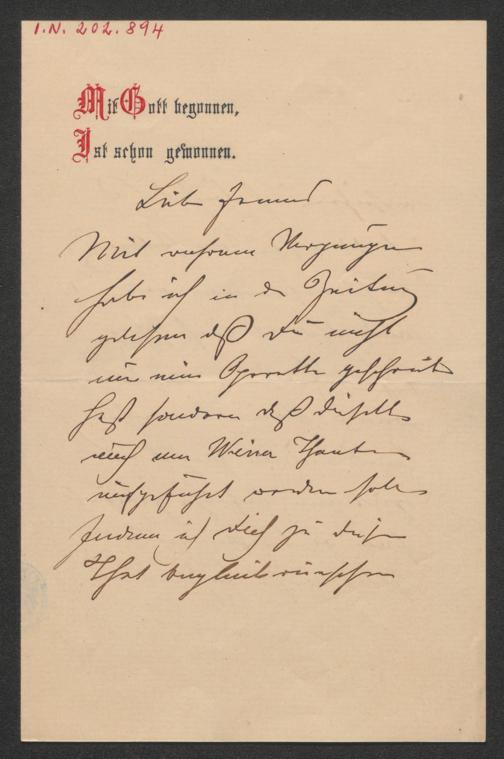 I.N. 202.894
Mit Gott begonnen,
Ist schon gewonnen.
Lieber Freund
Mit wahrem Vergnügen
habe ich in der Zeitung
gelesen daß Du nicht
nur eine Operette geschrieben
hast sondern daß dieselbe
auch am Wiener Theater
aufgeführt werden soll
Indem ich Dich zu dieser
That beglückwünsche